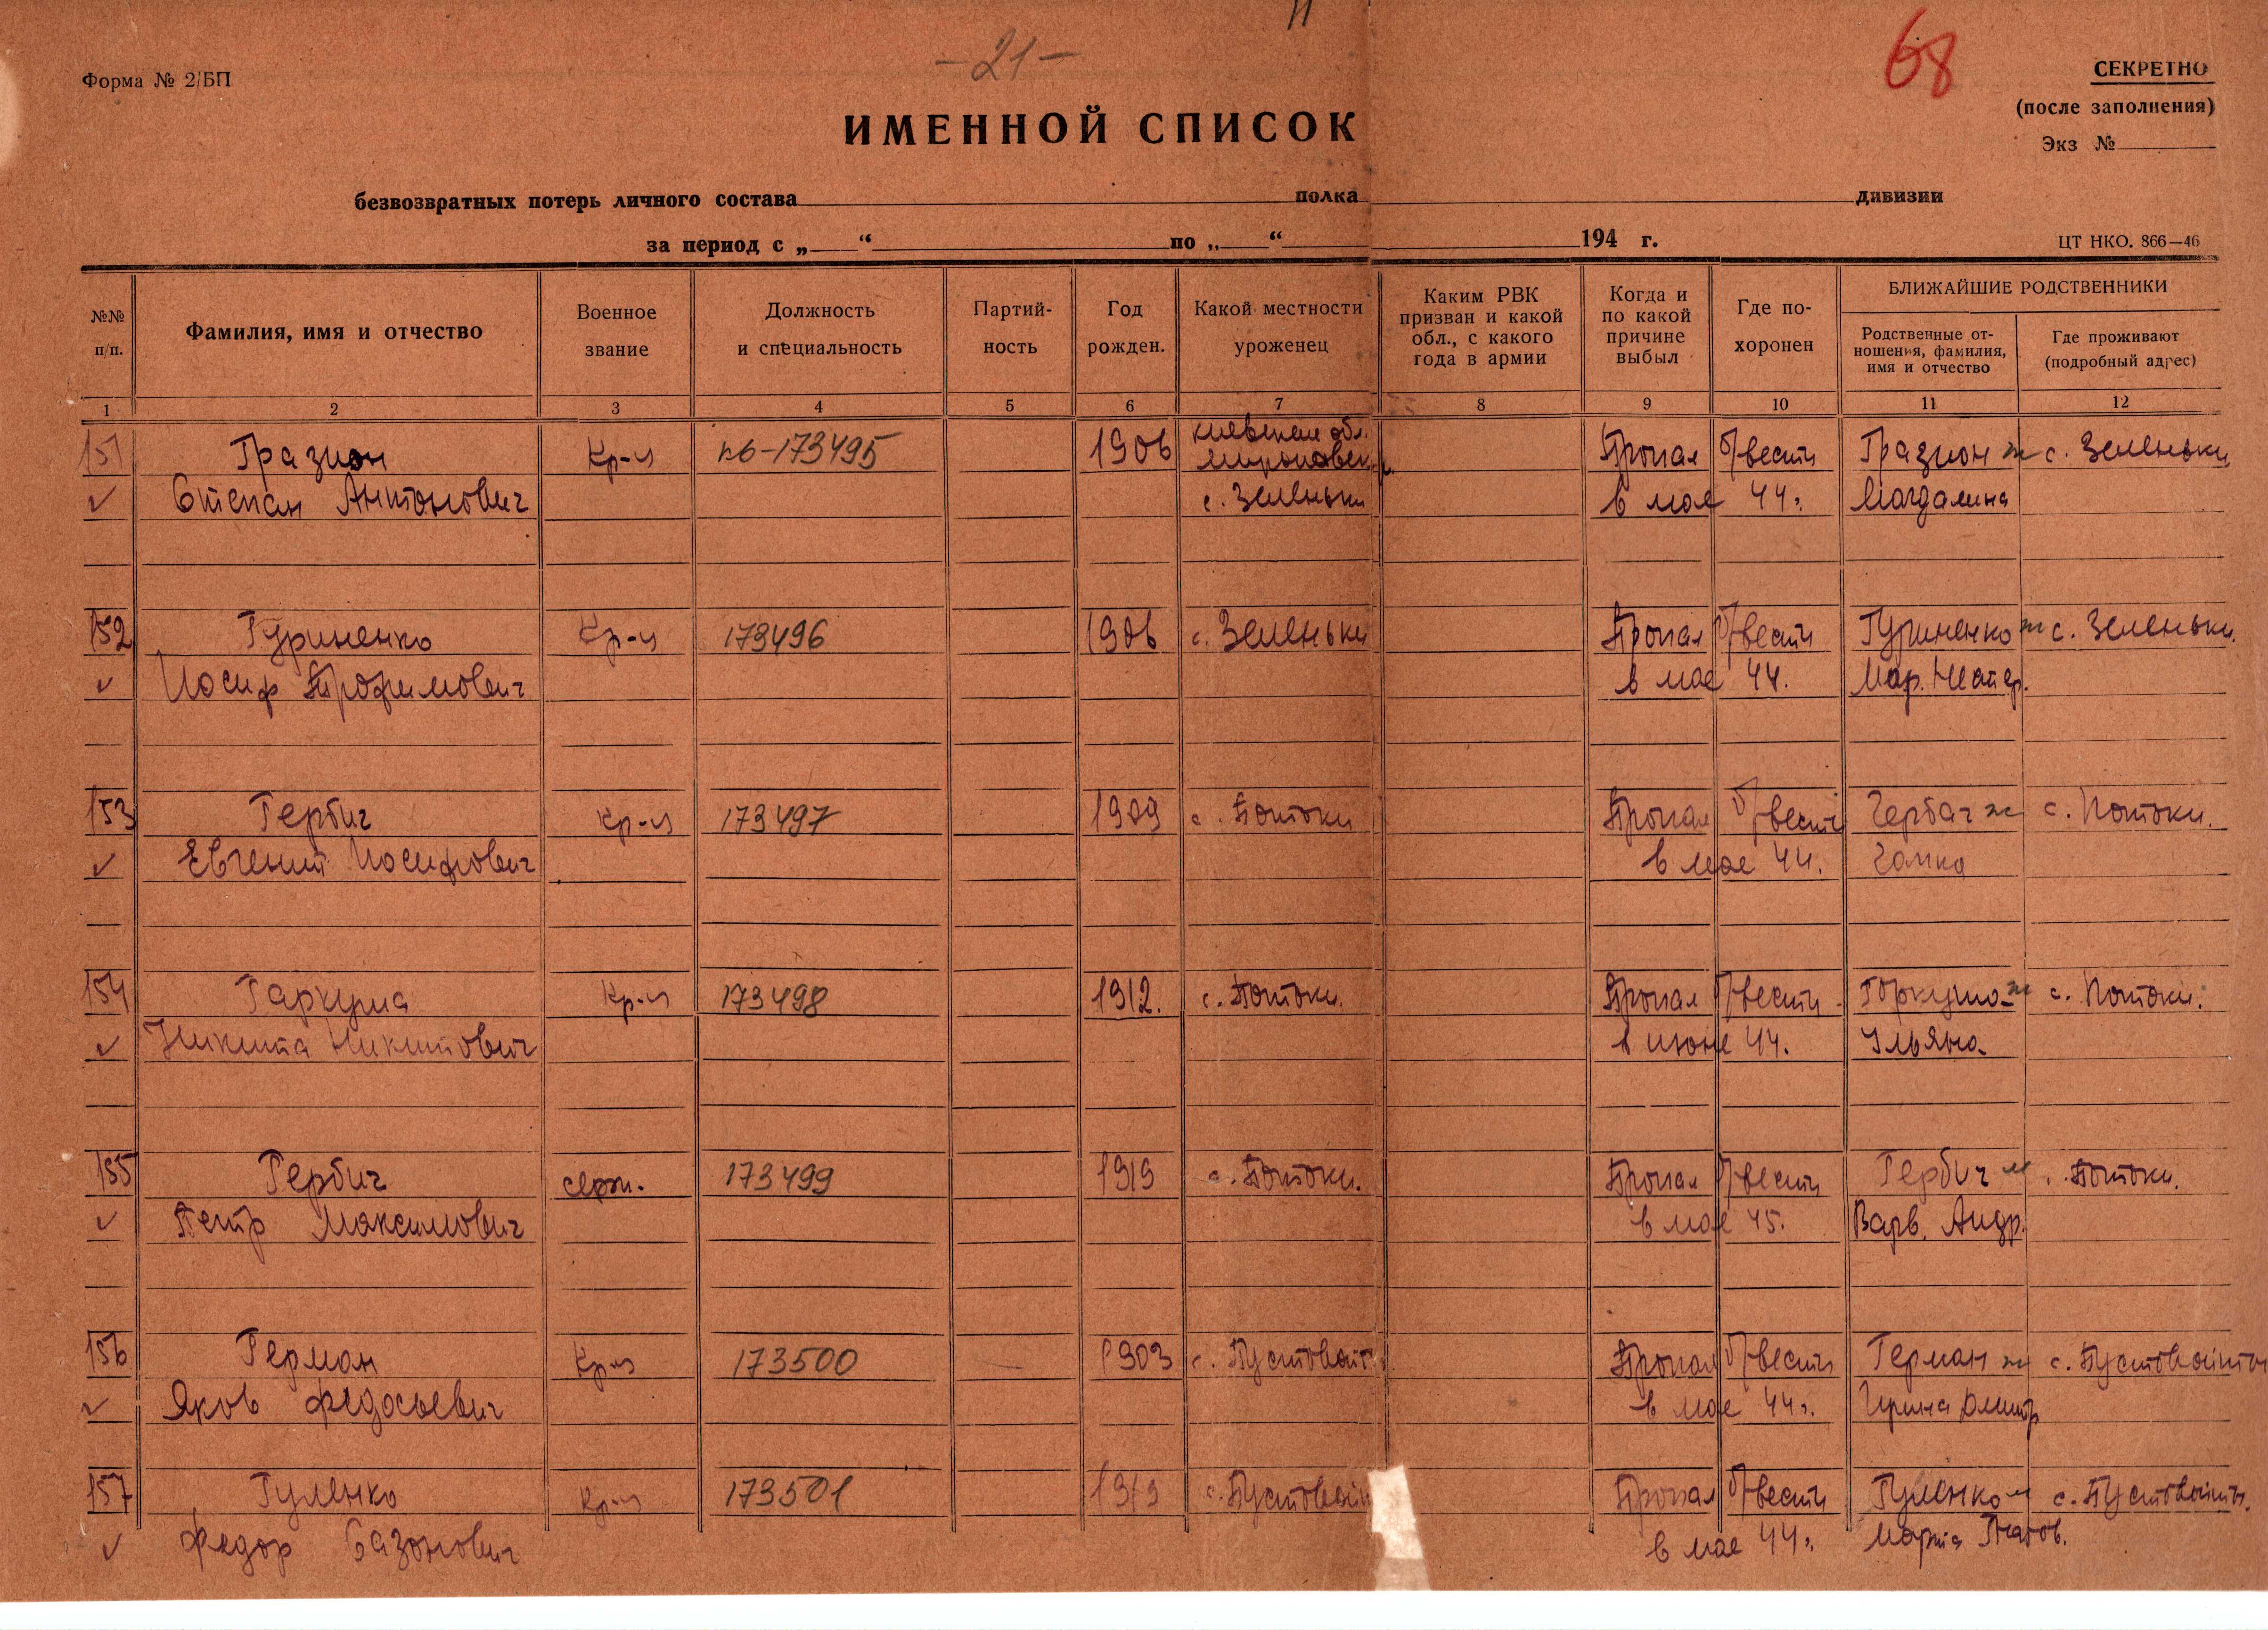 -21-
68
Форма № 2/БП
СЕКРЕТНО
(после заполнения)
Экз №
ИМЕННОЙ СПИСОК
безвозвратных потерь личного состава полка дивизии
за период с „ “ по „ “ 194 г.
ЦТ НКО. 866—46
№№ п/п.
Фамилия, имя и отчество
Военное звание
Должность и специальность
Партий-
ность
Год рожден.
Какой местности уроженец
Каким РВК
призван и какой
обл., с какого
года в армии
Когда и
по какой
причине
выбыл
Где по-
хоронен
БЛИЖАЙШИЕ РОДСТВЕННИКИ
Родственные от-
ношения, фамилия,
имя и отчество
Где проживают
(подробный адрес)
1 2 3 4 5 6 7 8 9 10 11 12
Киевская обл.
151 Гразион Кр-ц кб-173495 1906 Мироновск. р. Пропал б/вести Гразион ж с. Зеленьки
Степан Антонович с. Зеленьки в мае 44г. Магдалина
152 Гуриненко Кр-ц 173496 1906 с. Зеленьки Пропал б/вести Гуриненко ж с. Зеленьки.
Иосиф Трофимович в мае 44. Мар.
153 Гербич Кр-ц 173497 1909 с. Потоки Пропал б/вести Гербач ж с. Потоки.
Евгений Иосифович в мае 44.
154 Гаркуша Кр-ц 173498 1912. с. Потоки. Пропал б/вести Горкуша ж с. Потоки.
Никита Никитович в июне 44. Ульяна
155 Гербич серж. 173499 1919 с. Потоки. Пропал б/вести Гербич м с. Потоки.
Петр Максимович в мае 45. Варв. Андр.
156 Герман Кр-ц 173500 1903 с. Пустовойт Пропал б/вести Герман ж с. Пустовойты
Яков Федосьевич в мае 44г. Ирина Дмитр
157 Гуленко Кр-ц 173501 1919 с. Пустовойт Пропал б/вести Гуленко м с. Пустовойты.
Федор Сазонович в мае 44г. Мария